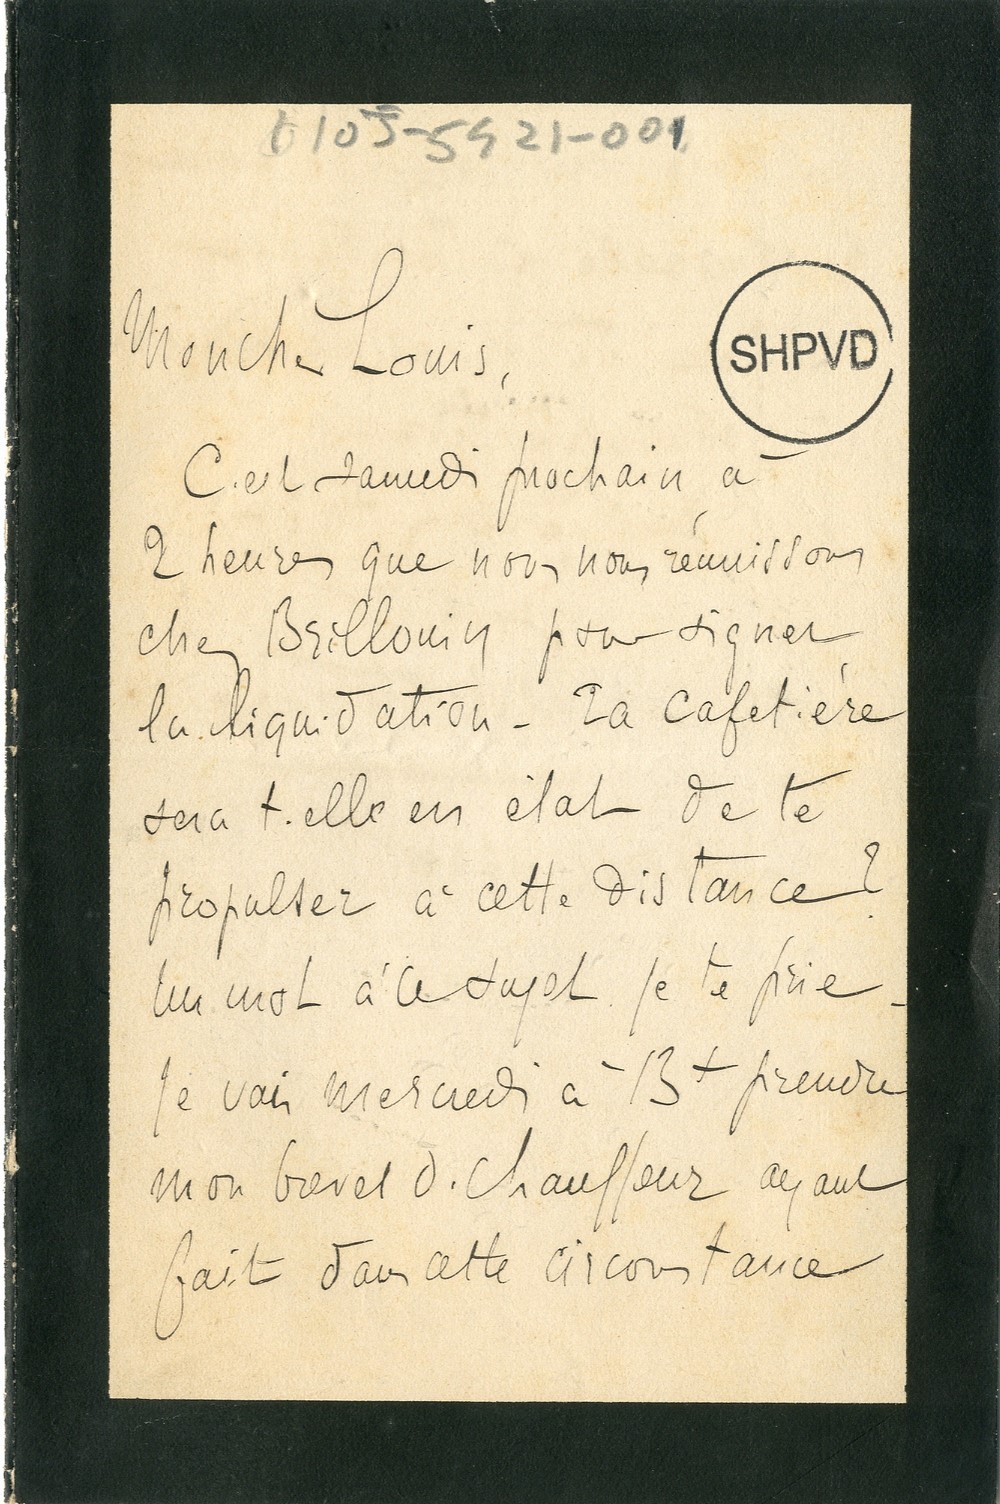 6105-5921-001
SHPVD
Mon cher Louis,
C'est samedi prochain à
2 heures que nous nous réunissons
chez Brillouin pour signer
la liquidation - Ta cafetière
sera t-elle en état de te
propulser à cette distance ?
Un mot à ce sujet je te prie -
Je vais mercredi à Bt prendre
mon brevet de chauffeur ayant
fait dans cette circonstance